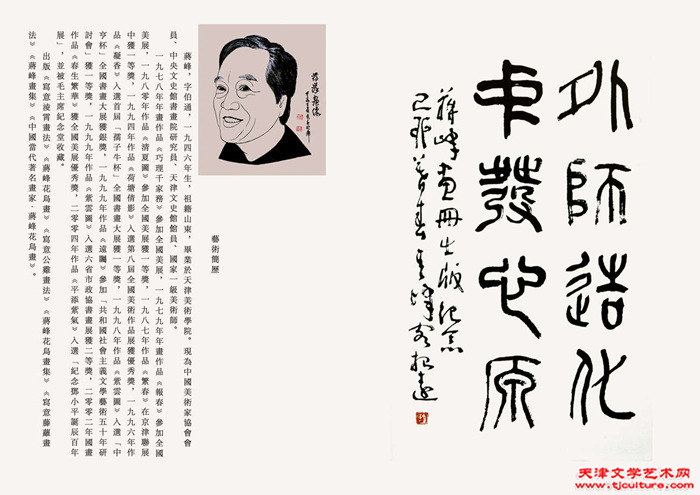 外師造化
中發心原
蔣峰畫冊出版紀念
藝術簡歷
蔣峰，字伯通，一九四六年生，祖籍山東，畢業於天津美術學院。現為中國美術家協會會
員、中央文史館書畫院研究員、天津文史館館員、國家一級美術師。
一九七八年年畫作品《巧理千家務》參加全國美展，一九七九年年畫作品《報春》參加全國
美展，一九八零年作品《清夏圖》參加全國美展獲一等獎，一九八七年作品《繁春》在京津聯展
中獲一等獎，一九九四年作品《荷塘倩影》入選第八屆全國美術作品展獲優秀獎，一九九六年作
品《凝香》入選首屆「孺子牛杯」全國書畫大展獲一等獎，一九九八年作品《紫雲圖》入選「中
亨杯」全國書畫大展獲銀獎，一九九九年作品《遠矚》參加「共和國社會主義文學藝術五十年研
討會」獲一等獎，一九九九年作品《紫雲圖》入選六省市政協書畫展獲二等獎，二零零二年國畫
作品《春生繁華》獲全國美展優秀獎，二零零四年作品《平添紫氣》入選「紀念鄧小平誕辰百年
展」，並被毛主席紀念堂收藏。
出版《寫意淩霄畫法》《蔣峰花鳥畫》《寫意公雞畫法》《蔣峰花鳥畫集》《寫意藤蘿畫
法》《蔣峰畫集》《中國當代著名畫家·蔣峰花鳥畫》。
天津文学艺术网
www.tjculture.com